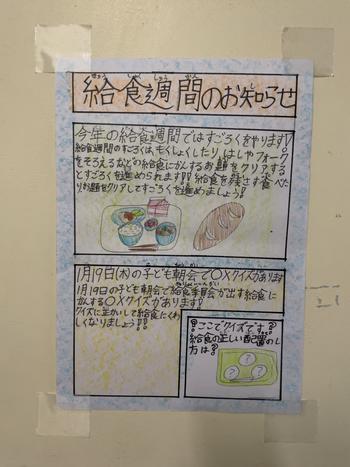 きゅう しょく しゅう かん
給食週間のお知らせ
今年の給食週間ではすごろくをやります!
給食週間のすごろくは、もくしょくしたり、はしやフォーク
をそろえるなどの給食にかんするお題をクリアする
とすごろくを進められます!!給食を残さず食べた
りお題をクリアしてすごろくを進めましょう!!
1月19日(木)の子ども朝会で〇×クイズがあります
1月19日の子ども朝会で給食委員会が出す給食に
かんする〇×クイズがあります!
クイズに正かいして給食にくわ
しくなりましょう!!
!?ここでクイズです!?
給食の正しい配置のし
方は?
? ? ?